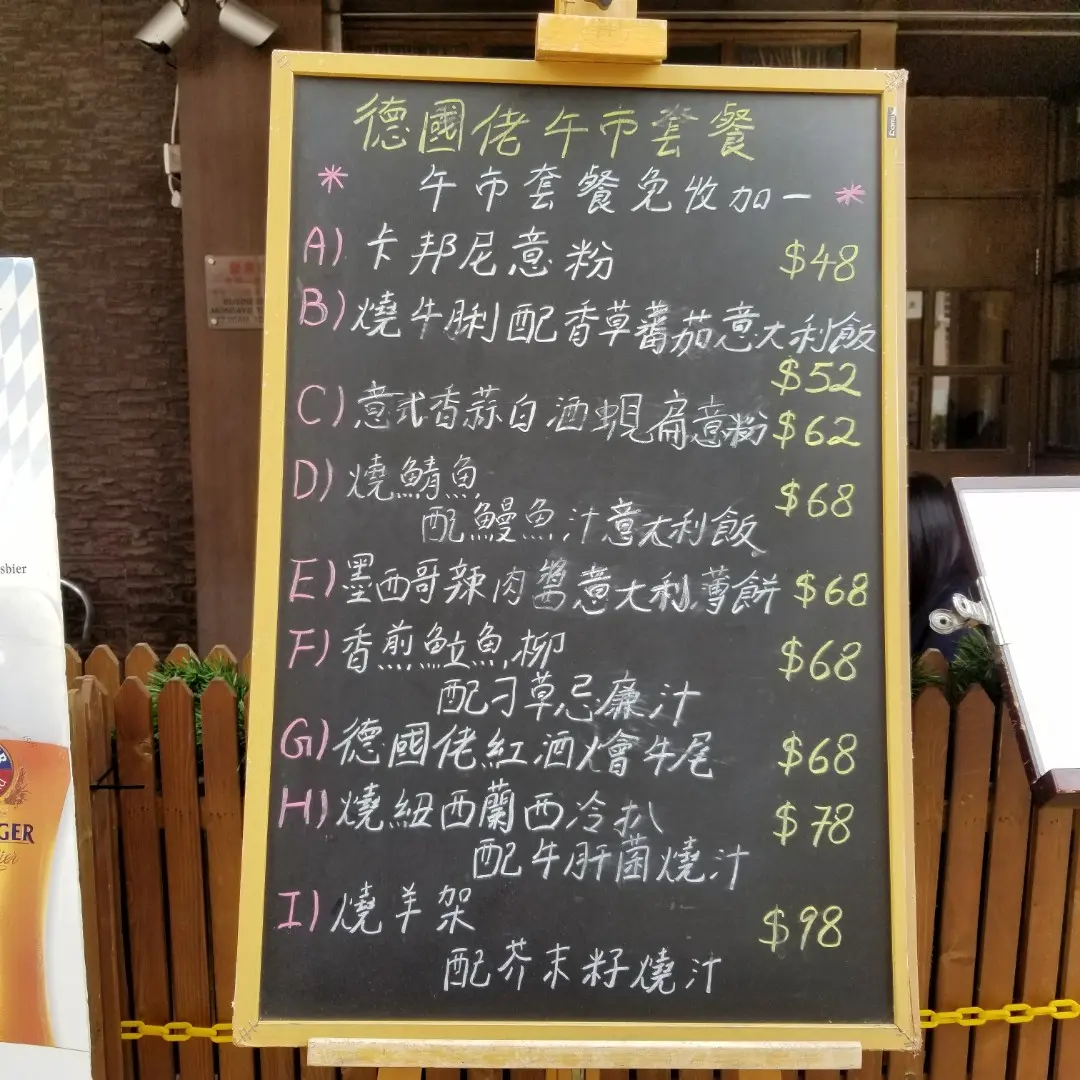 德國佬午市套餐
* 午市套餐免收加一 *
A) 卡邦尼意粉 $48
B) 燒牛脷配香草蕃茄意大利飯
$52
C) 意式香蒜白酒蜆扁意粉 $62
D) 燒鯖魚 $68
配鰻魚汁意大利飯
E) 墨西哥辣肉醬意大利薄餅 $68
F) 香煎魚立魚柳 $68
配刁草忌廉汁
G) 德國佬紅酒燴牛尾 $68
H) 燒紐西蘭西冷扒 $78
配牛肝菌燒汁
I) 燒羊架 $98
配芥末籽燒汁
sbier
GER